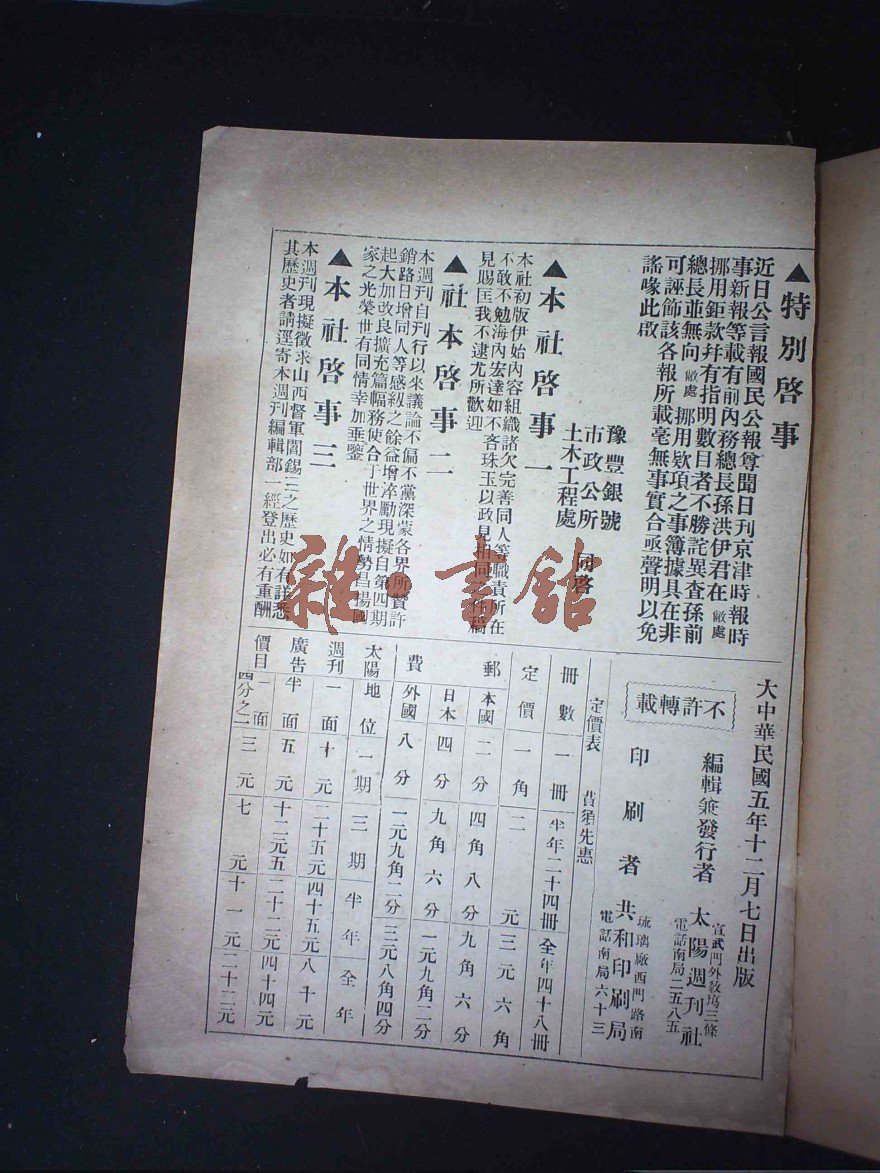 ▲特別啓事
近日公言報國民公報尊聞日刊京津時報時
事新報等載有前內務總長孫洪伊君在敝處
挪用鉅款幷有指明數目者不勝詫異查孫前
總長並無向敝處挪用欵項之事簿據具在非
可誣飾該各報所載毫無事實合亟聲明以免
謠喙此啟
豫豐銀號
市政公所 同啓
土木工程處
▲本社啓事一
本社初版伊始內容組織諸欠完善同人等職責所在
不敢不勉海內宏達如不吝珠玉以政見相同
見賜匡我不逮尤所歡迎
▲社本啓事二
本週刊自刊行以來議論不偏不黨深蒙各界所贊許
銷路日增同人等感級之餘益增淬勵現擬自第四期
起大加改良擴充篇幅務使合于世界之情勢昌揚國
家之光榮世有同情幸加垂鑒
▲本社啓事三
本週刊現擬徵求山西督軍閻錫三之歷史如有詳悉
其歷史者請逕寄本週刊編輯部一經登出必有重酬
大中華民國五年十二月七日出版
不許轉載
編輯兼發行者 太陽週刊社
宣武門外敎塲三條
電話南局二五八五
印刷者 共和印刷局
琉璃廠西門路南
電話南局六十三
定價表 費須先惠
冊數 一冊 半年二十四冊 全年四十八冊
定價 一角 二元 三元六角
郵費
本國 二分 四角八分 九角六分
日本 四分 九角六分 一元九角二分
外國 八分 一元九角二分 三元八角四分
太陽週刊廣告價目
地位 一期 三期 半年 全年
一面 十元 二十五元 四十五元 八十元
半面 五元 十二元五 二十二元 四十四元
一面四分之二 三元 七元 十一元 二十二元
雜·書館